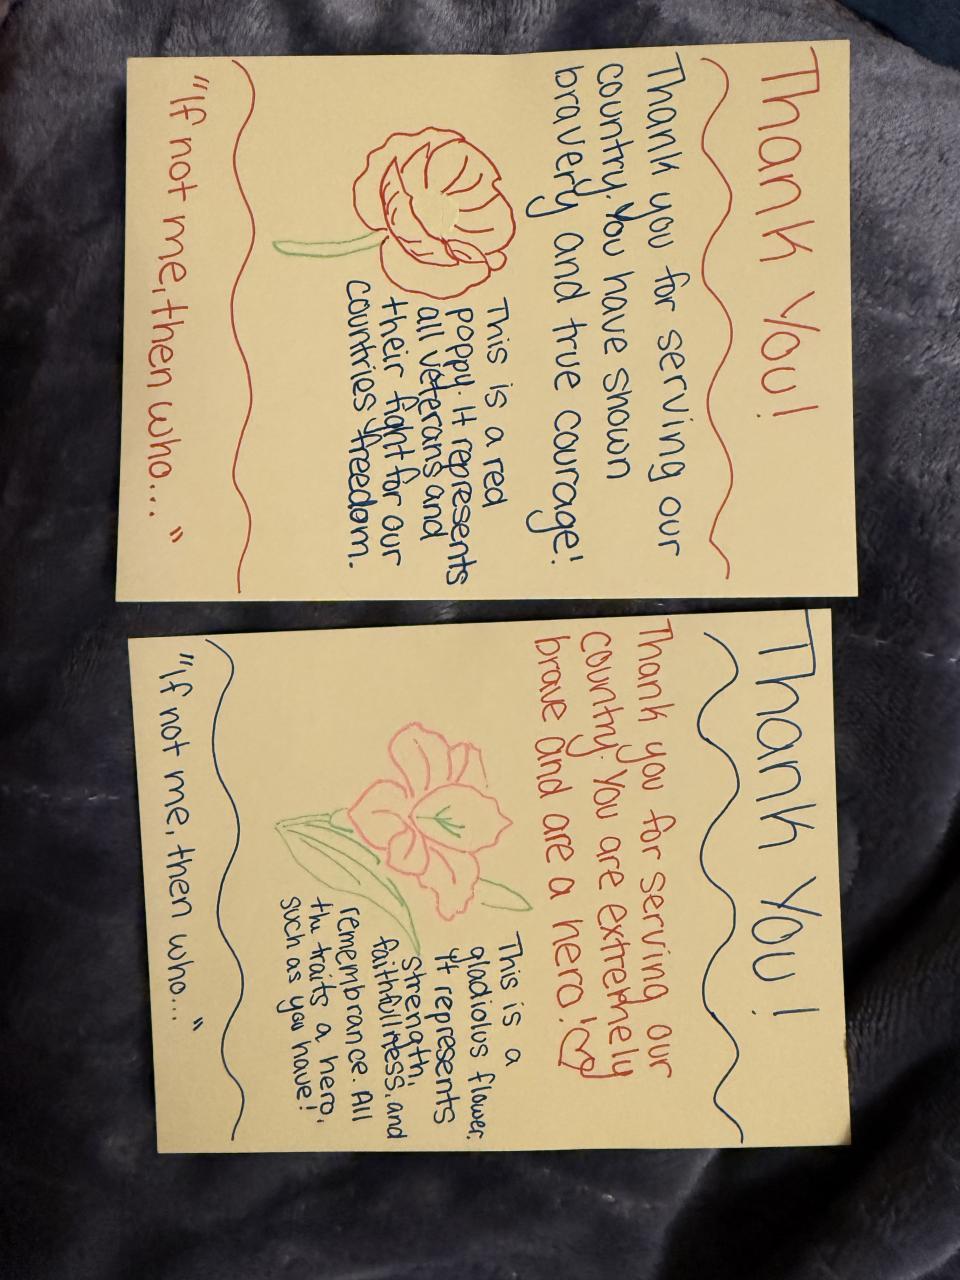 Thank You!
Thank you for serving our
country. You have shown
bravery and true courage!
This is a red
poppy. It represents
all veterans and
their fight for our
countries freedom.
"If not me, then who... "
Thank You!
Thank you for serving our
country. You are extremely
brave and are a hero!
This is a
gladiolus flower.
It represents
strength,
faithfullness, and
remembrance. All
the traits a hero,
such as you have!
"If not me, then who... "